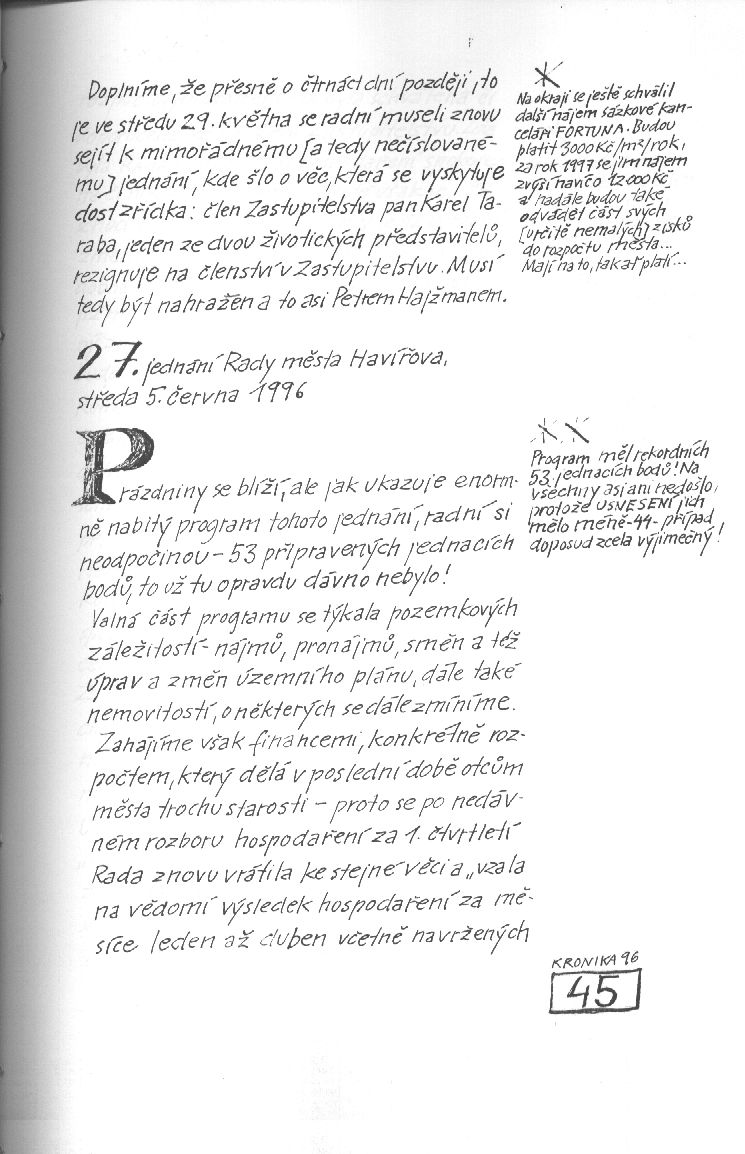 Doplníme, že přesně o čtrnáct dní později, to
je ve středu 29. května se radní museli znovu
sejít k mimořádnému [a tedy nečíslované-
mu] jednání, kde šlo o věc, která se vyskytuje
dost zřídka: člen Zastupitelstva pan Karel Ta-
raba, jeden ze dvou životických představitelů,
rezignuje na členství v Zastupitelstvu. Musí
tedy být nahražen a to asi Petrem Hajžmanem.
Na okraji se ještě schválil
další nájem sázkové kan-
celáři FORTUNA. Budou
platit 3000 Kč/m²/rok,
za rok 1997 se jim nájem
zvýší navíc o 12 000 Kč
a nadále budou také
odvádět část svých
[určitě nemalých] zisků
do rozpočtu města...
Mají na to, tak ať platí...
27. jednání Rady města Havířova,
středa 5. června 1996
Prázdniny se blíží, ale jak ukazuje enorm-
ně nabitý program tohoto jednání, radní si
neodpočinou – 53 připravených jednacích
bodů, to už tu opravdu dávno nebylo!
Valná část programu se týkala pozemkových
záležitostí – nájmů, pronájmů, směn a též
úprav a změn územního plánu, dále také
nemovitostí, o některých se dále zmíníme.
Zahajíme však financemi, konkrétně roz-
počtem, který dělá v poslední době otcům
města trochu starosti – proto se po nedáv-
ném rozboru hospodaření za 1. čtvrtletí
Rada znovu vrátila ke stejné věci a „vzala
na vědomí výsledek hospodaření za mě-
síce leden až duben včetně navržených
Program měl rekordních
53 jednacích bodů! Na
všechny asi ani nedošlo,
protože USNESENÍ jich
mělo méně -44- případ
doposud zcela výjimečný!
KRONIKA 96
45